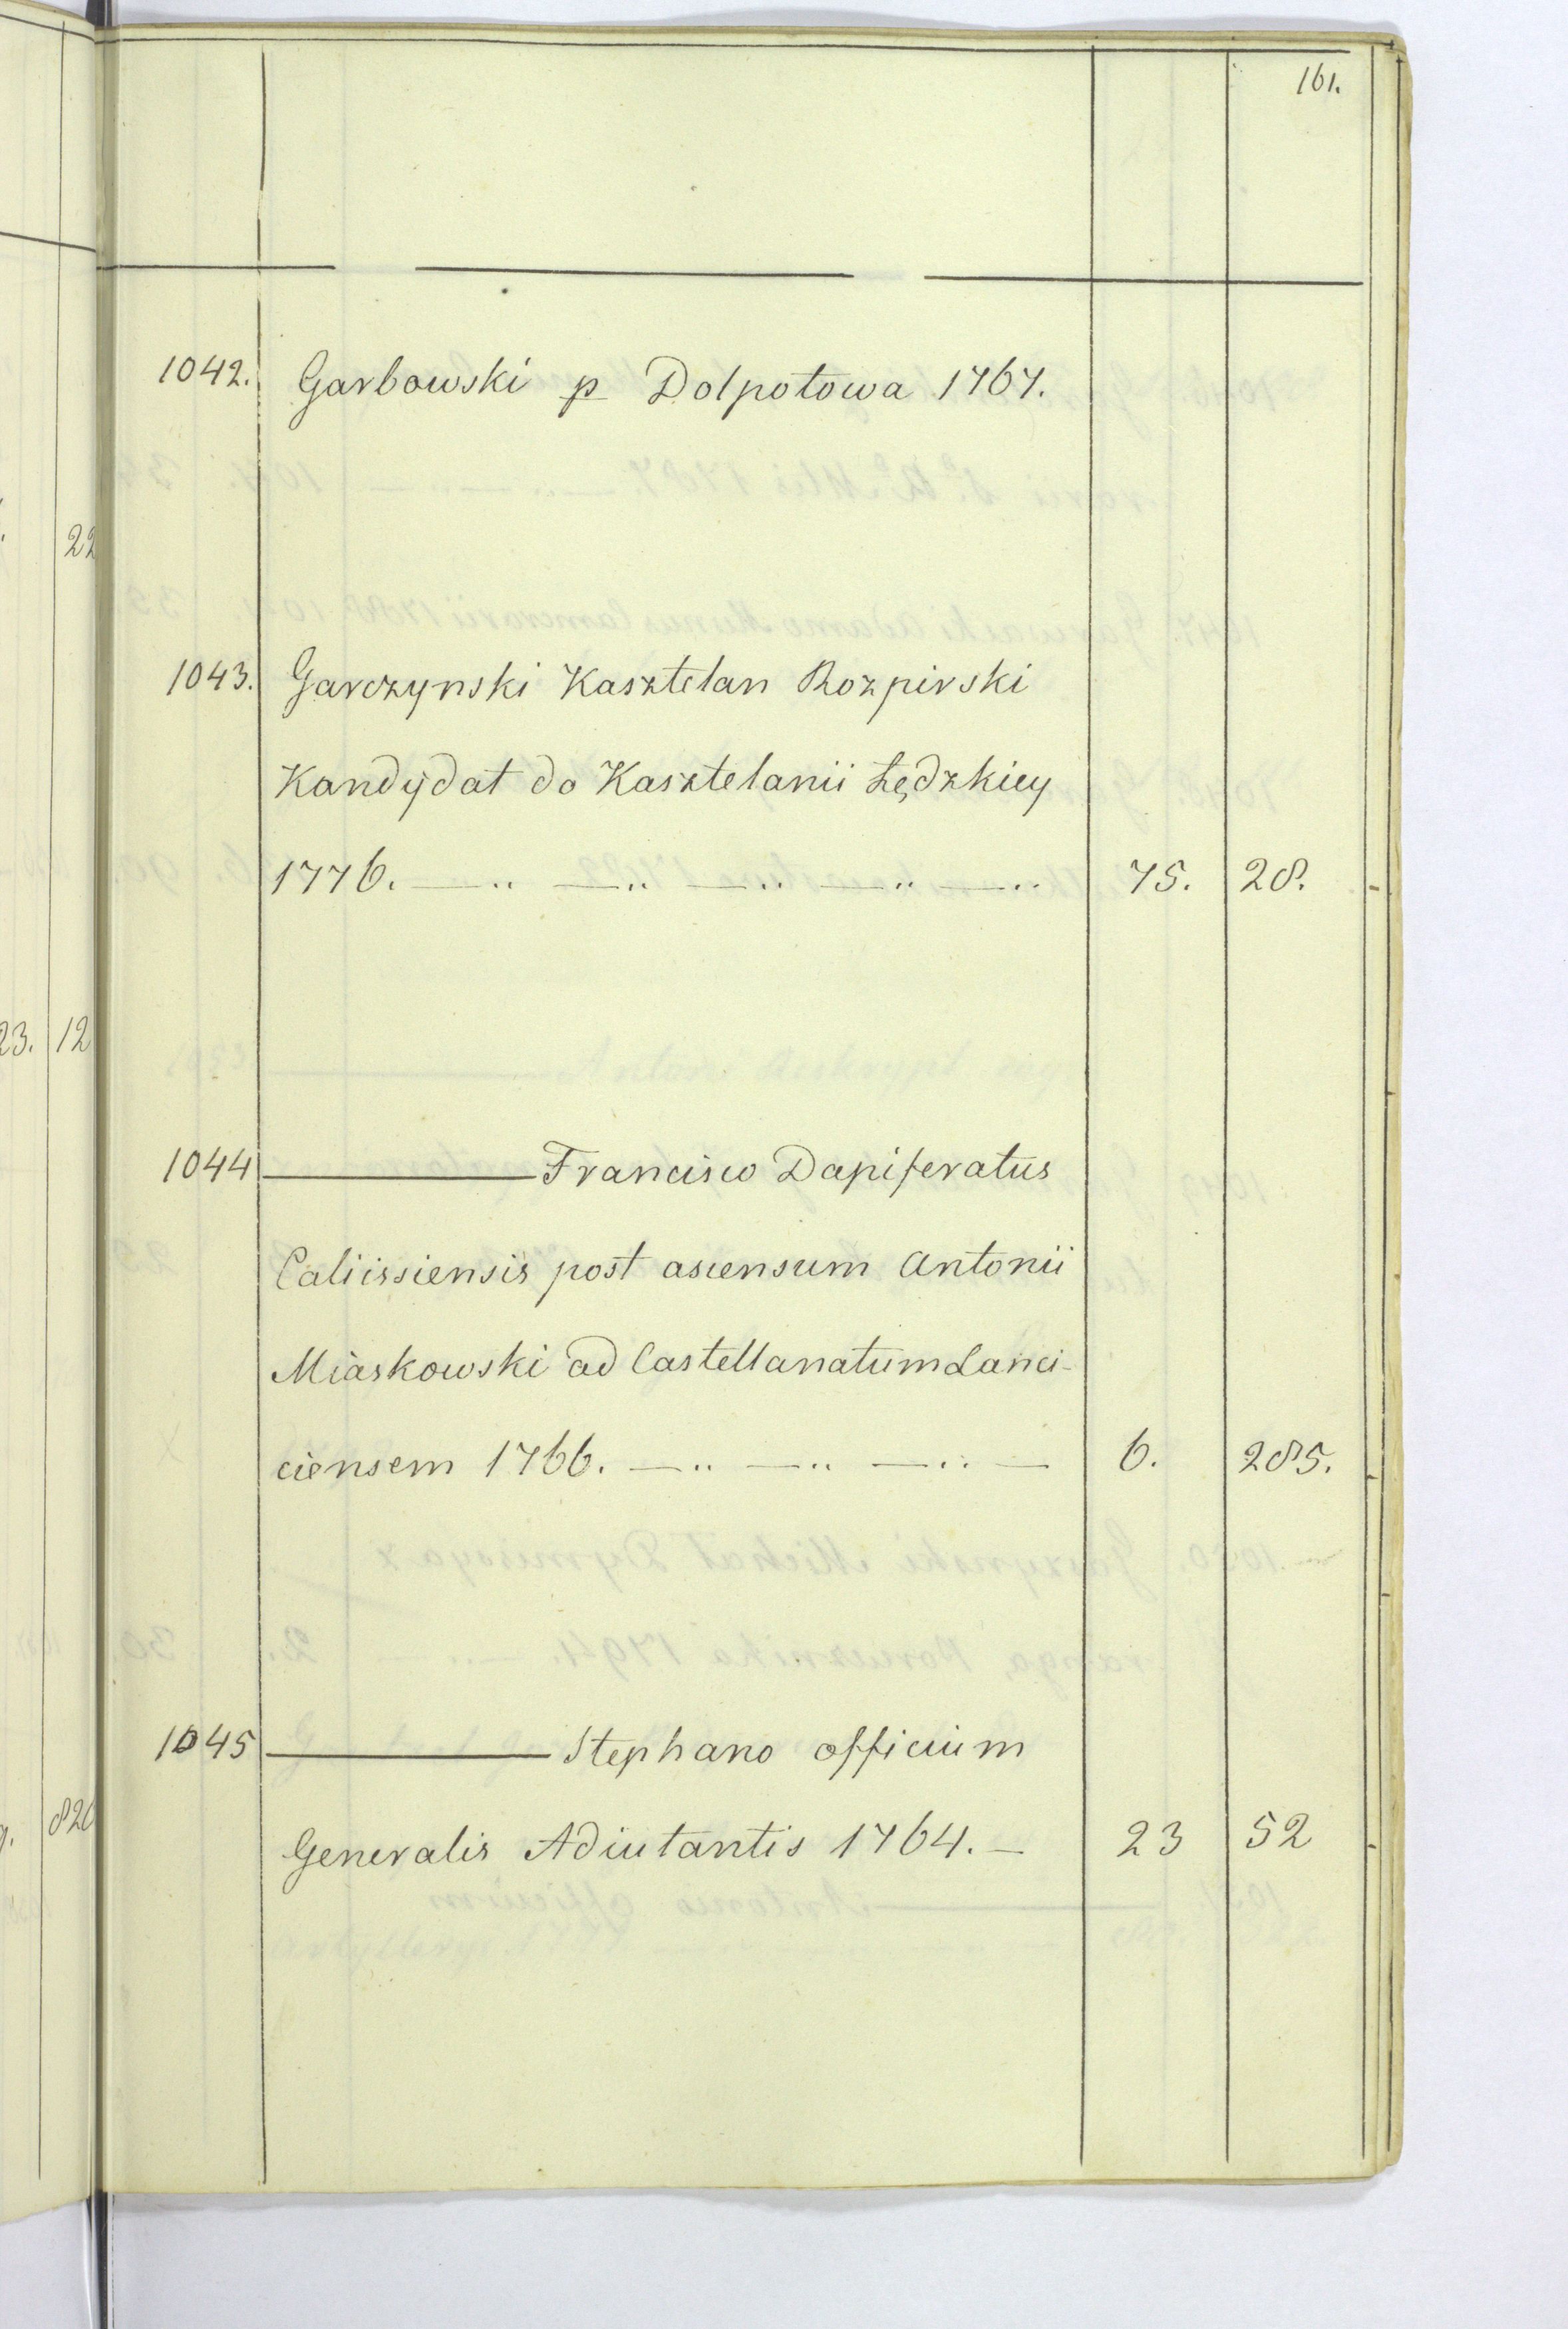 161.
1042. Garbowski p Dolpotowa 1767.
1043. Garczynski Kasztelan Rozpirski
Kandydat do Kasztelanii Lędzkiey
1776. —.. —.. —.. —.. —.. 75. 28.
1044 ——— Francisco Dapiferatus
Caliissiensis post ascensum Antonii
Miaskowski ad Castellanatum Lanci-
ciensem 1766. —.. —.. —.. — 6. 285.
1045 ——— Stephano officium
Generalis Adiutantis 1764. — 23 52
22
23. 12
820